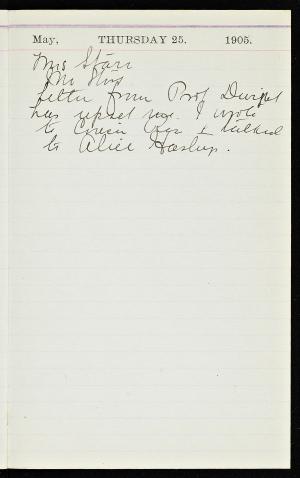 May, THURSDAY 25. 1905.
Mrs Starr
Mr
Letter from Prof Dwight
has upset me. I wrote
to Cousin & talked
to Alice Haslup.